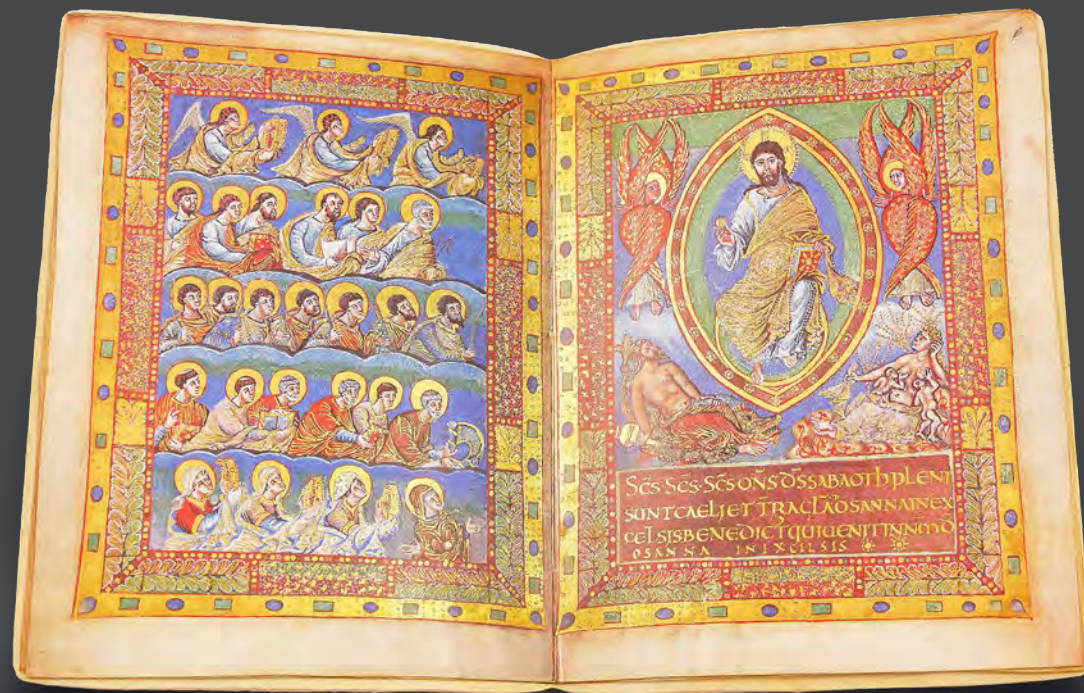 SCS·SCS·SCS DNS DS SABAOTH PLENI
SUNT CAELI ET TRA GLA OSANNA IN EX
CELSIS BENEDICT QUI UENIT IN N D
OSANNA IN EXCELSIS